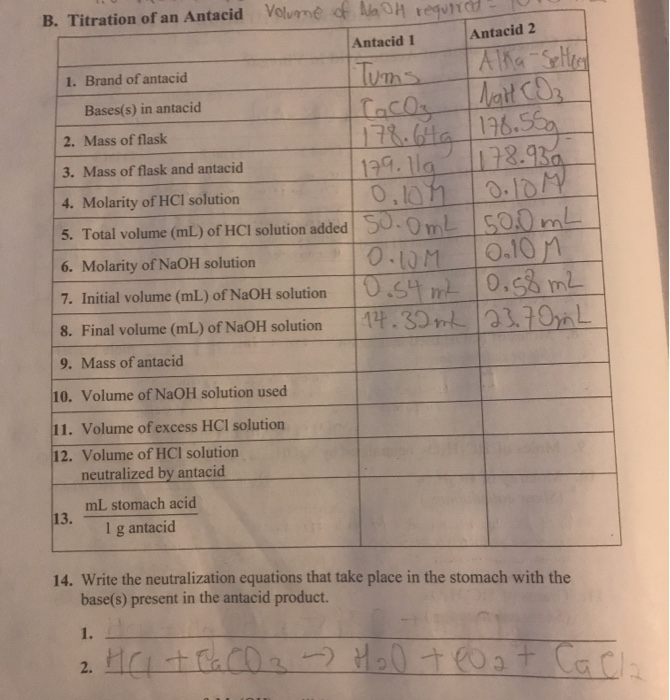 B. Titration of an Antacid Volume of NaOH required
Antacid 1 Antacid 2
1. Brand of antacid Tums Alka-Seltzer
Bases(s) in antacid CaCO3 NaHCO3
2. Mass of flask 178.64g 178.55g
3. Mass of flask and antacid 179.11g 178.93g
4. Molarity of HCl solution 0.10M 0.10M
5. Total volume (mL) of HCl solution added 50.0mL 50.0mL
6. Molarity of NaOH solution 0.10M 0.10M
7. Initial volume (mL) of NaOH solution 0.54 mL 0.58 mL
8. Final volume (mL) of NaOH solution 14.32mL 23.70mL
9. Mass of antacid
10. Volume of NaOH solution used
11. Volume of excess HCl solution
12. Volume of HCl solution
neutralized by antacid
13. mL stomach acid
1 g antacid
14. Write the neutralization equations that take place in the stomach with the
base(s) present in the antacid product.
1.
2. HCl + CaCO3 → H2O + CO2 + CaCl2